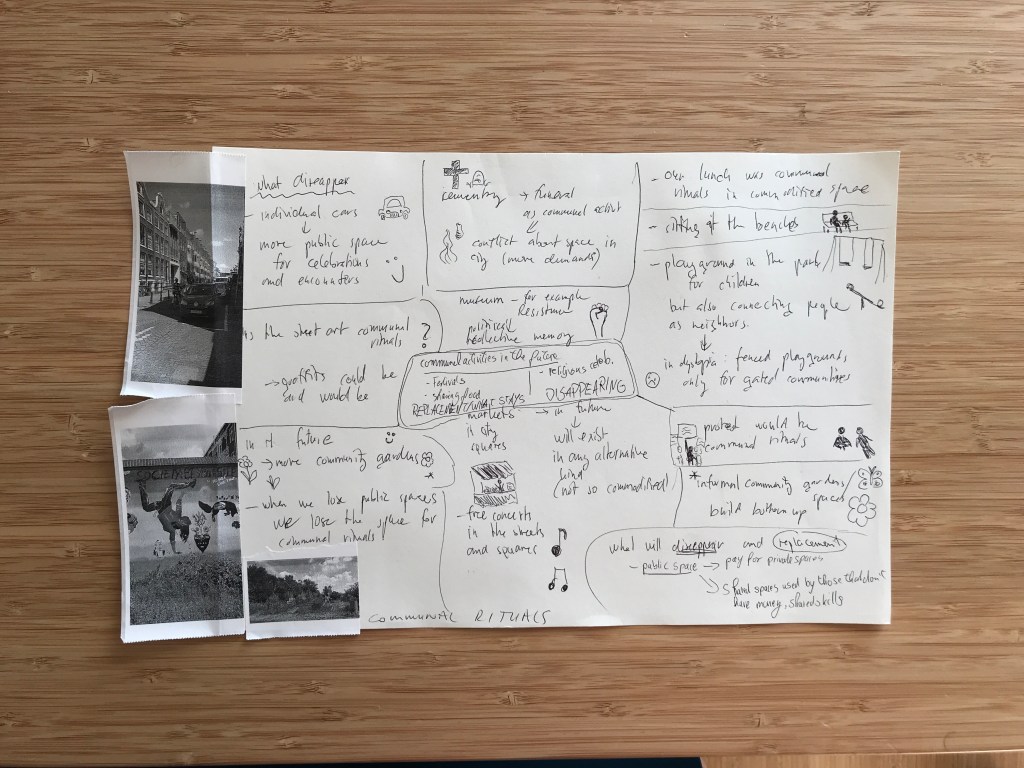 what diseappear
- individual cars
more public space
for celebrations
and encounters
→ funeral
as communal activit
conflict about space in
city (more demands)
- our lunch was communal
rituals in commodified space
- sitting at the benches
- playground in the park
for children
but also connecting people
as neighbors.
in dystopia: fenced playground,
only for gated communities
museum - for example
Resistance
political
memory
is the street art communal
rituals ?
→ graffits could be
and would be
communal activities in the future
- festivals
- sharing food
- religious celeb.
REPLACEMENT/WHAT STAYS
DISAPPEARING
in future
→ more community gardens
- when we lose public spaces
we lose the space for
communal rituals
markets
in city
squares
- free concerts
in the streets
and squares
→ in future
will exist
in any alternative
kind
(not so commodified)
protest would be
communal rituals
* informal community gardens
spaces
build bottom up
what will diseappear and replacement
- public space → pay for private spaces
spaces used by those that don't
have money, shared skills
COMMUNAL RITUALS